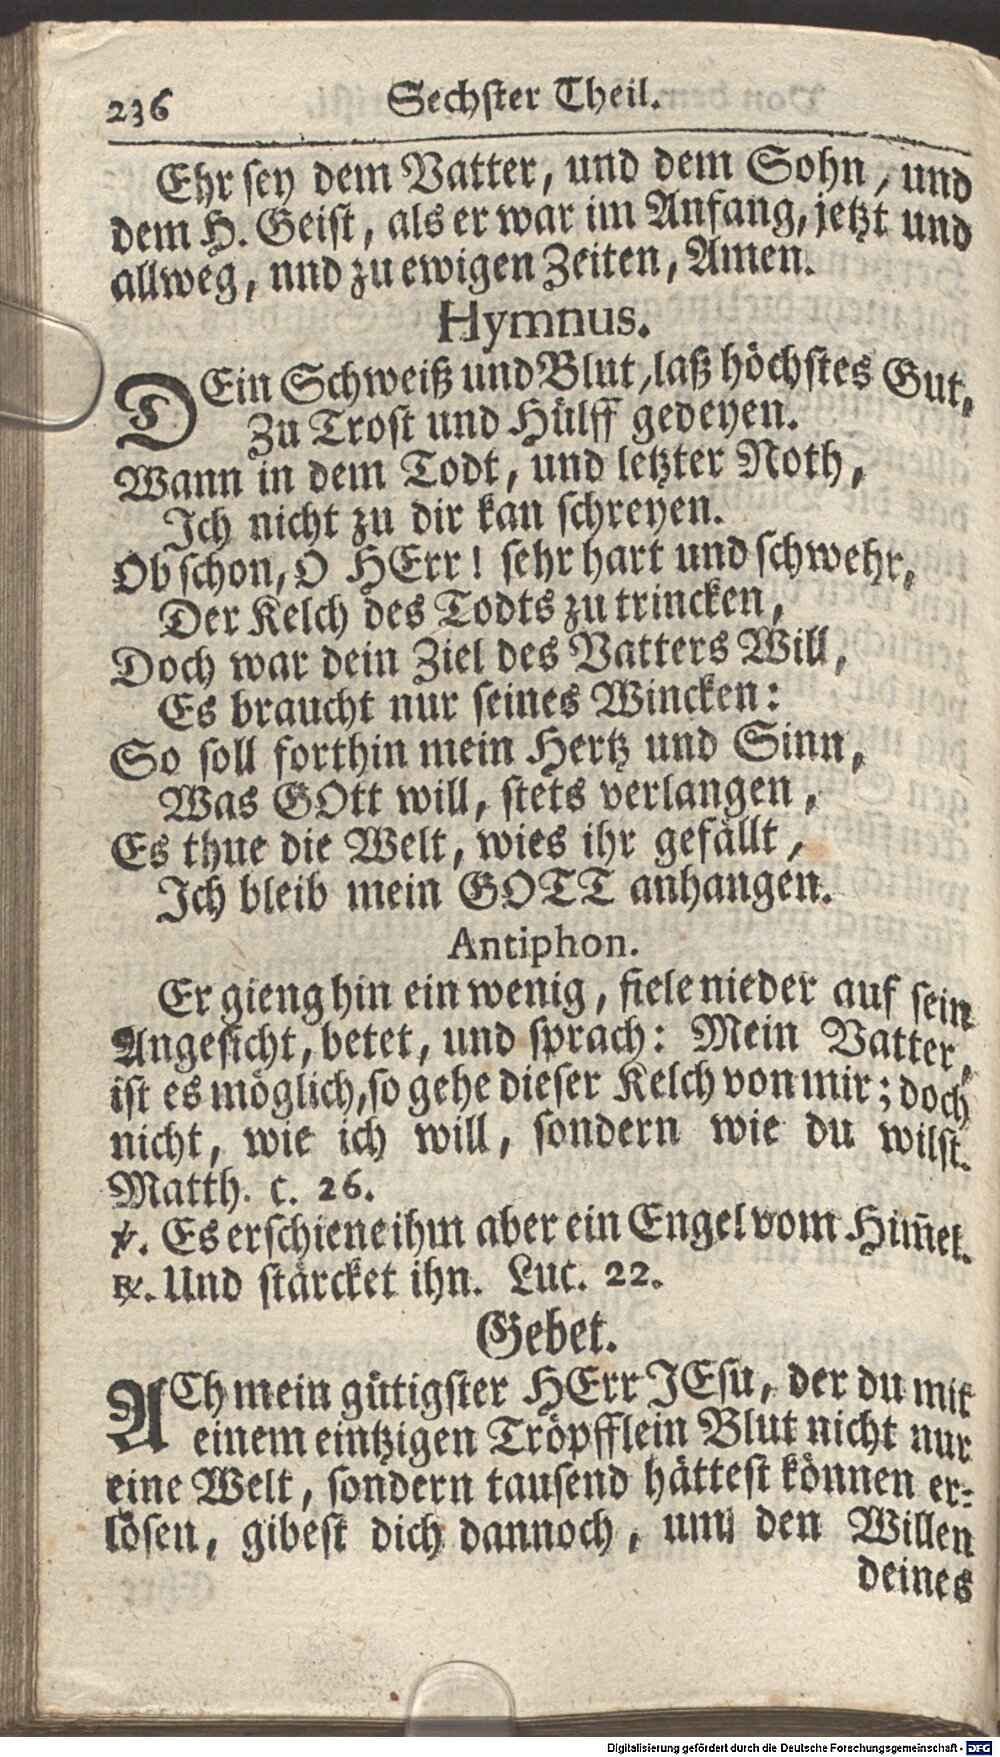 236 Sechster Theil.
Ehr sey dem Vatter, und dem Sohn, und
dem H. Geist, als er war im Anfang, jetzt und
allweg, nnd zu ewigen Zeiten, Amen.
Hymnus.
DEin Schweiß und Blut, laß höchstes Gut,
Zu Trost und Hülff gedeyen.
Wann in dem Todt, und letzter Noth,
Ich nicht zu dir kan schreyen.
Ob schon, O HErr! sehr hart und schwehr,
Der Kelch des Todts zu trincken,
Doch war dein Ziel des Vatters Will,
Es braucht nur seines Wincken:
So soll forthin mein Hertz und Sinn,
Was GOtt will, stets verlangen,
Es thue die Welt, wies ihr gefällt,
Ich bleib mein GOTT anhangen.
Antiphon.
Er gieng hin ein wenig, fiele nieder auf sein
Angesicht, betet, und sprach: Mein Vatter,
ist es möglich, so gehe dieser Kelch von mir; doch
nicht, wie ich will, sondern wie du wilst.
Matth. c. 26.
℣. Es erschiene ihm aber ein Engel vom Him̄el.
℞. Und stärcket ihn. Luc. 22.
Gebet.
ACh mein gütigster HErr JEsu, der du mit
einem eintzigen Tröpfflein Blut nicht nur
eine Welt, sondern tausend hättest können er-
lösen, gibest dich dannoch, um den Willen
deines
Digitalisierung gefördert durch die Deutsche Forschungsgemeinschaft - DFG